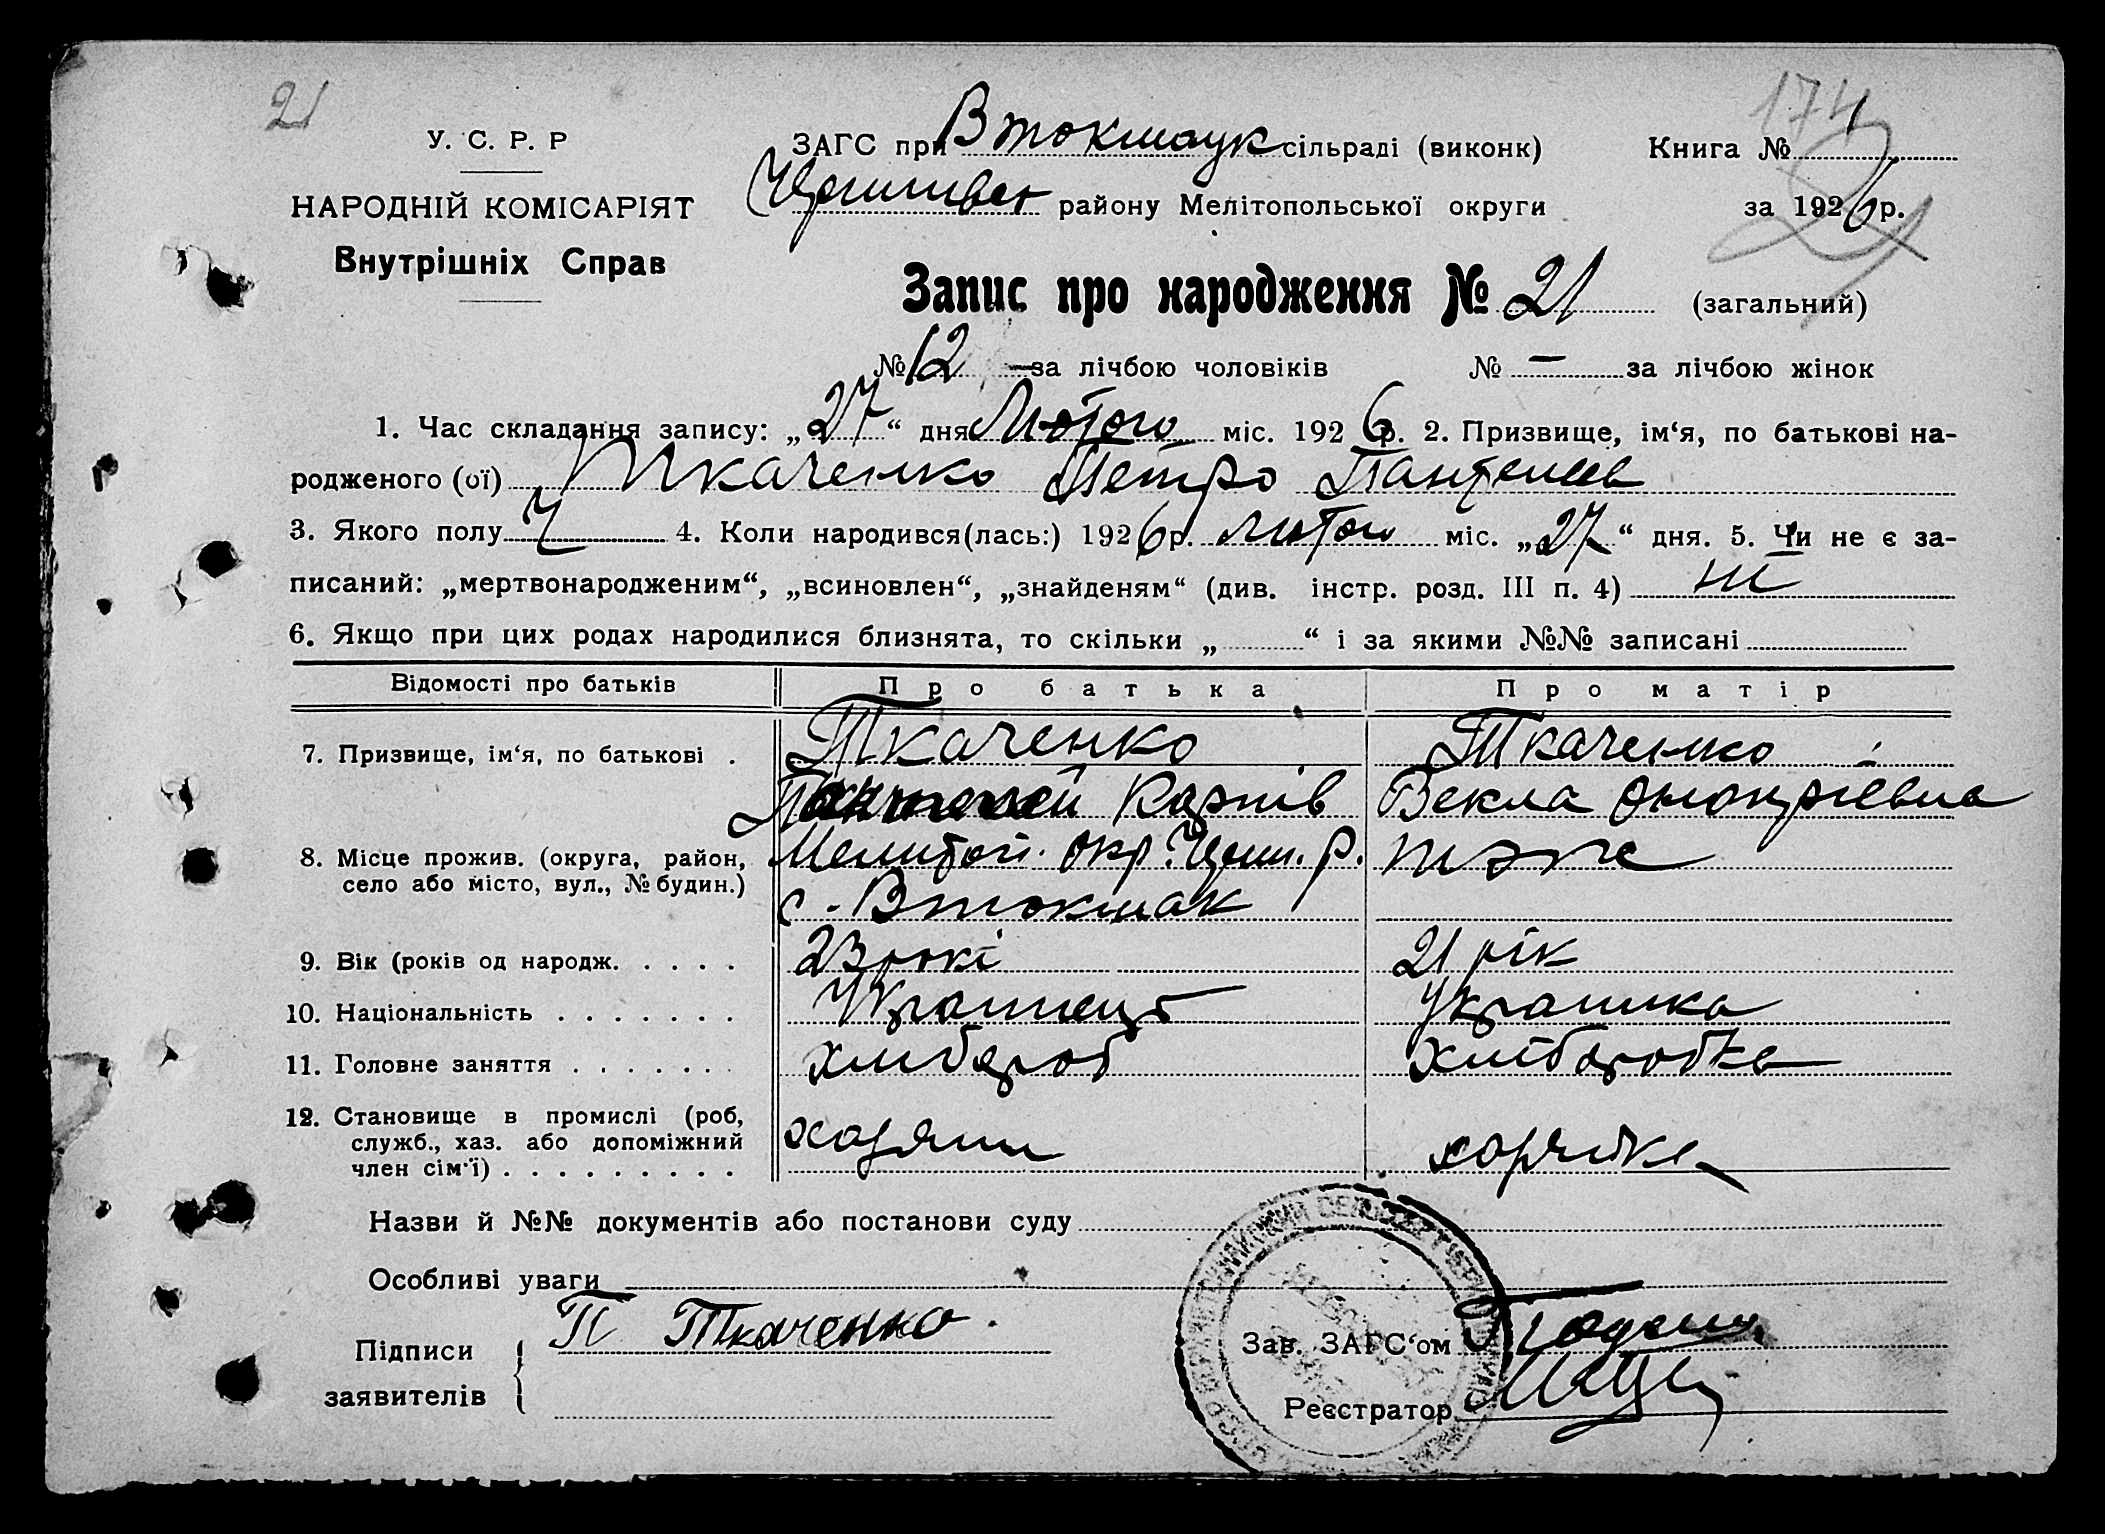 21
174
У. С. Р. Р
НАРОДНІЙ КОМІСАРІЯТ
Внутрішніх Справ
ЗАГС при Втокмаук сільраді (виконк)
Книга №
района Мелітопольської округи
за 1926 р.
Запис про народження № 21 (загальний)
№ 12 — за лічбою чоловіків № — за лічбою жінок
1. Час складання запису: „27“ дня Лютого міс. 1926 р. 2. Призвище, ім‘я, по батькові на-
родженого (ої) Ткаченко Петро Пантелеев
3. Якого полу Ч 4. Коли народився(лась:) 1926 р. лютого міс. „27“ дня. 5. Чи не є за-
писаний: „мертвонародженим“, „всиновлен“, „знайденям“ (див. інстр. розд. III п. 4) ні
6. Якщо при цих родах народилися близнята, то скільки „ “ і за якими №№ записані
Відомості про батьків Про батька Про матір
7. Призвище, ім‘я, по батькові . Ткаченко Ткаченко
Пантелей Карпів Векла Онопріевна
8. Місце прожив. (округа, район, Мелитоп. окр. р. тоже
село або місто, вул., № будин.) с. Втокмак
9. Вік (років од народж. . . . . 23 рокі 21 рік
10. Національність . . . . . . . Українець Українка
11. Головне заняття . . . . . . . хлибороб хліборобка
12. Становище в промислі (роб,
служб., хаз. або допоміжний хозяин хозяйка
член сім‘ї) . . . . . . . . .
Назви й №№ документів або постанови суду
Особливі уваги
Підписи П Ткаченко
заявителів
Зав. ЗАГС‘ом
Реєстратор